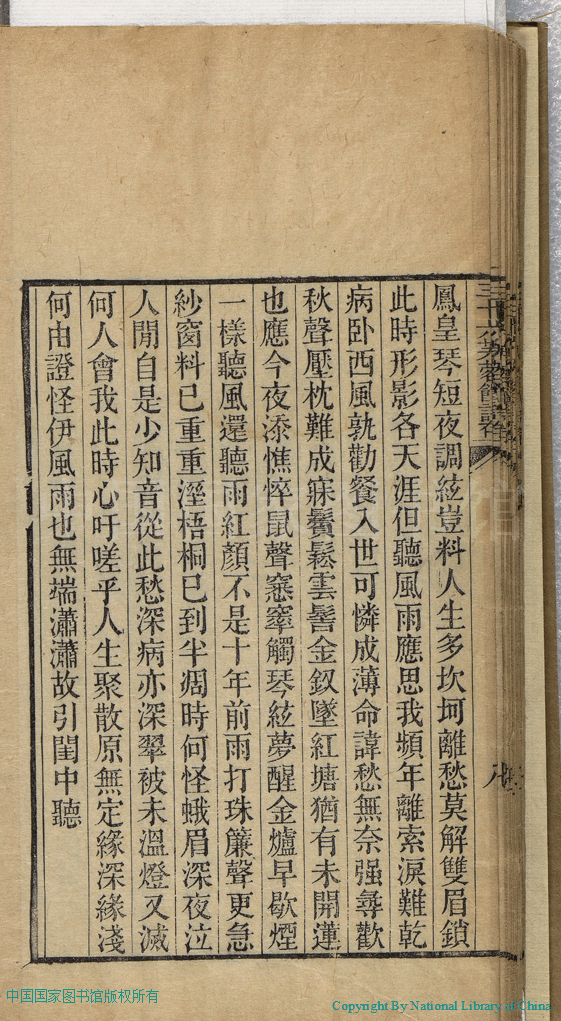 鳳皇琴短夜調絃豈料人生多坎坷離愁莫解雙眉鎖
此時形影各天涯但聽風雨應思我頻年離索淚難乾
病卧西風孰勸餐入世可憐成薄命諱愁無奈强尋歡
秋聲壓枕難成寐鬢鬆雲髻金釵墜紅塘猶有未開蓮
也應今夜添憔悴鼠聲窸窣觸琴絃夢醒金爐早歇煙
一樣聽風還聽雨紅顏不是十年前雨打珠簾聲更急
紗窗料已重重溼梧桐已到半凋時何怪蛾眉深夜泣
人閒自是少知音從此愁深病亦深翠被未溫燈又滅
何人會我此時心吁嗟乎人生聚散原無定緣深緣淺
何由證怪伊風雨也無端瀟瀟故引閨中聽
三十六芙蓉館詩存
八
中国国家图书馆版权所有
Copyright By National Library of China